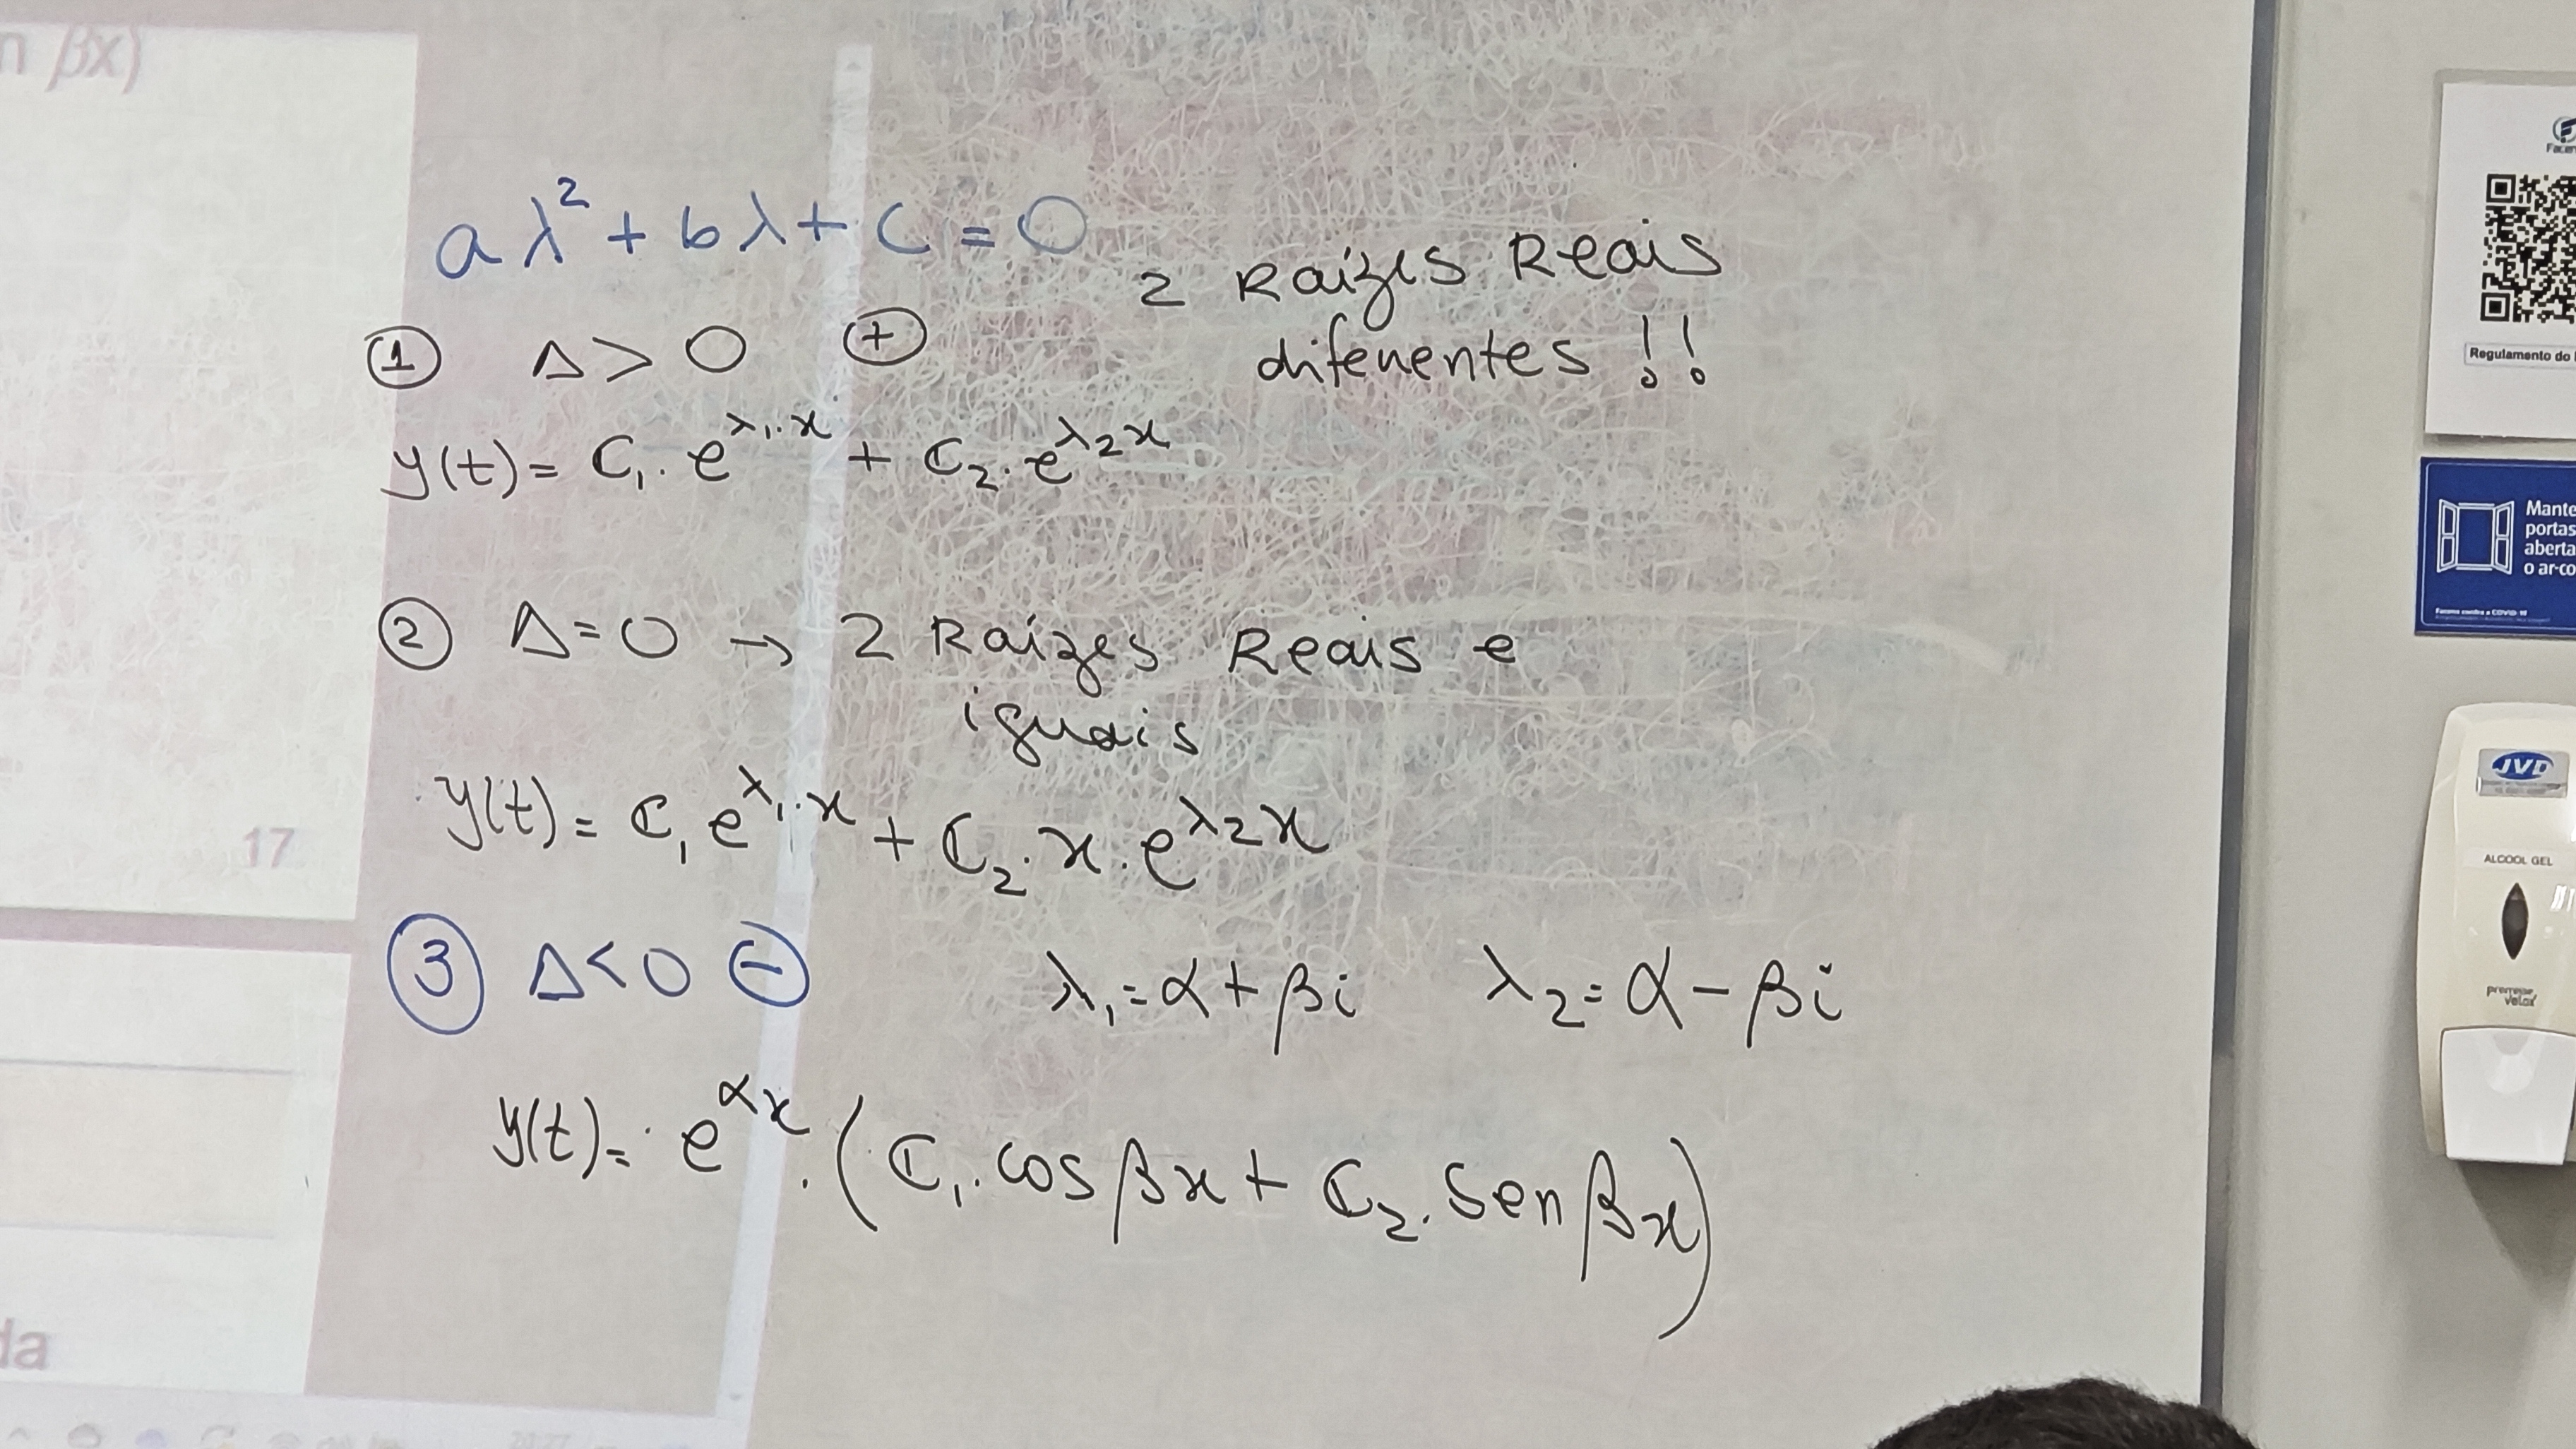 n βx)
aλ² + bλ + C = 0
2 Raízes Reais
diferentes !!
① Δ > 0 ⊕
y(t) = C₁. e^λ₁.x + C₂. e^λ₂x
② Δ = 0 → 2 Raízes Reais e
iguais
y(t) = C₁ e^λ₁.x + C₂. x. e^λ₂x
17
③ Δ < 0 ⊖ λ₁ = α + βi λ₂ = α - βi
y(t) = e^αx . (C₁. cos βx + C₂. Sen βx)
da
Facen
Regulamento do
Mante
portas
aberta
o ar-co
JVD
ALCOOL GEL
premisse
velox